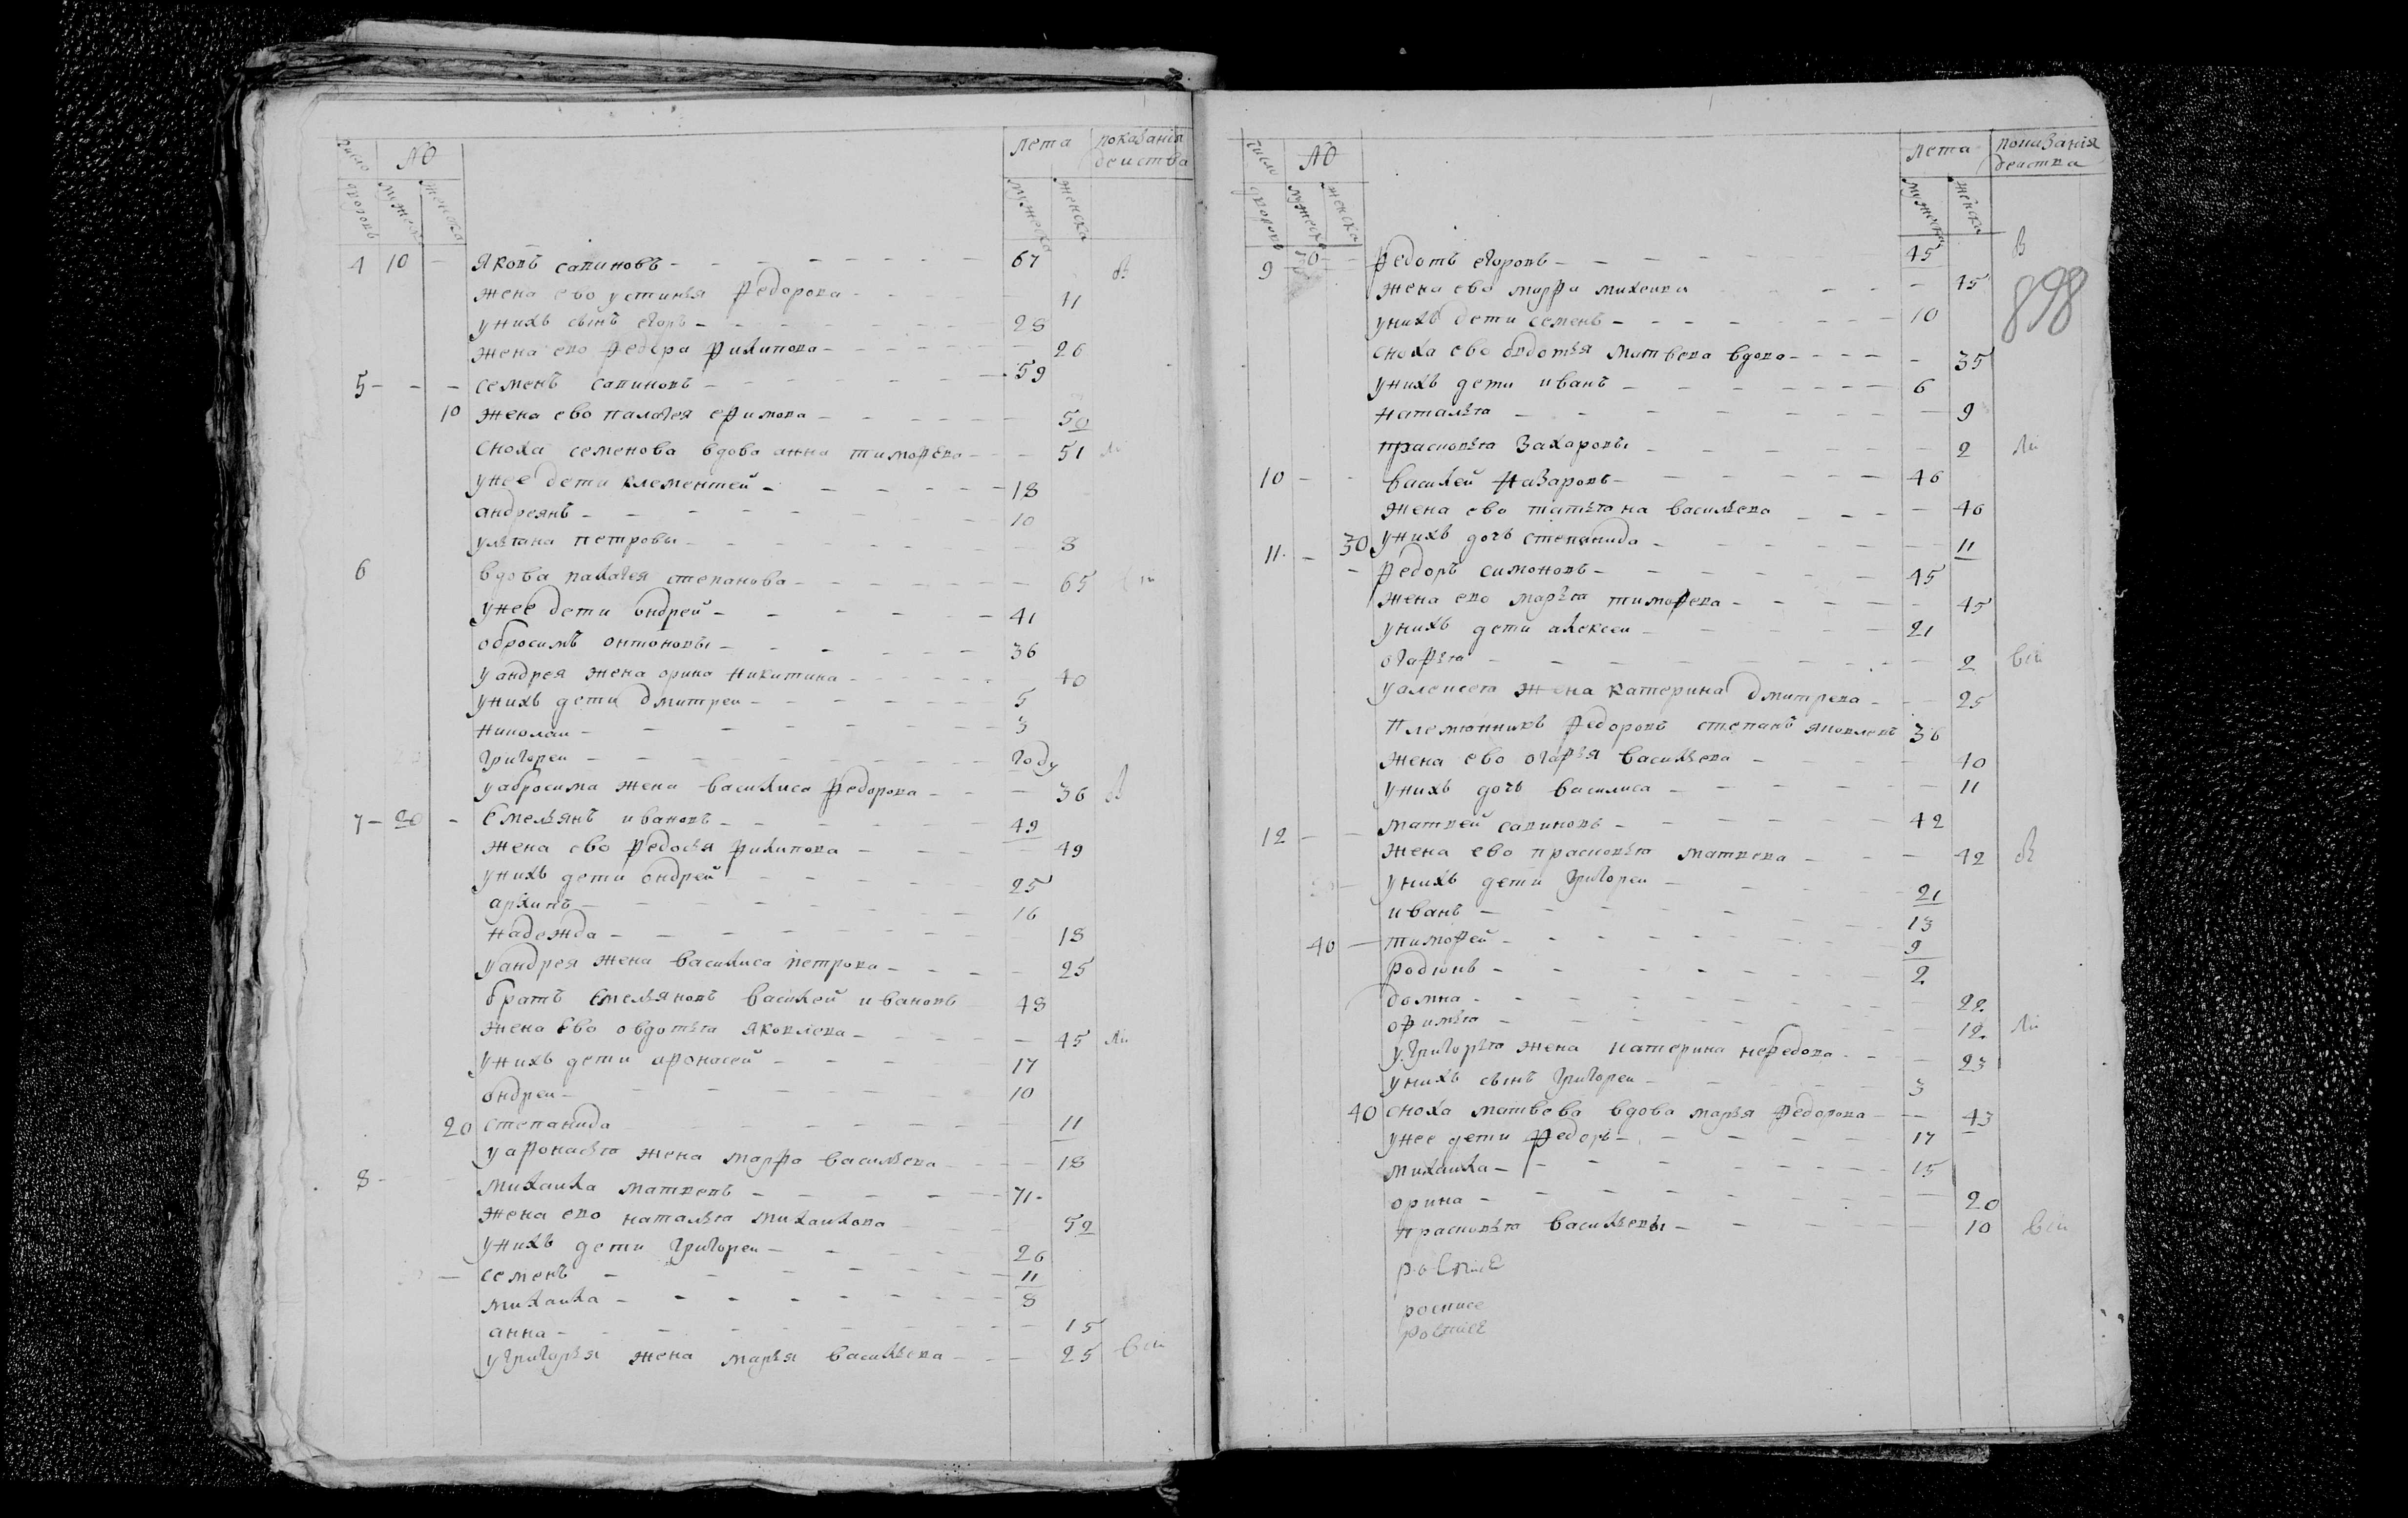 число дворовъ № мужеска женска лета мужеска женска показания действа
4 10 - Яковъ савиновъ - 67
жена ево устинья федорова - 41
унихъ сынъ егоръ - 28
жена ево федора филипова - 26
5 - - - семенъ савиновъ - 59
10 жена ево палагея ефимова - 50
сноха семенова вдова анна тимофева - 51
унее дети клементей - 18
андреянъ - 10
ульяна петровы - 8
6 вдова палагея степанова - 65
унее дети ондрей - 41
обросимъ онтоновы - 36
уандрея жена орина никитина - 40
унихъ дети дмитреи - 5
николаи - 3
григореи - году
уабросима жена василиса федорова - 36
7 - 20 - Емельянъ ивановъ - 49
жена ево федосья филипова - 49
унихъ дети ондрей - 25
архипъ - 16
надежда - 18
уандрея жена василиса петрова - 25
братъ емельяновъ василей ивановъ 48
жена ево овдотья яковлева - 45
унихъ дети афонасей - 17
ондреи - 10
20 степанида - 11
уафонасья жена марфа васильева - 18
8 - михаила матвевъ - 71
жена ево наталья михаилова 52
унихъ дети григореи - 26
семенъ - 11
михаила - 8
анна - 15
угригорья жена марья васильева - 25
число дворовъ № мужеска женска лета мужеска женска показания действа
898
9 30 - федотъ егоровъ - 45
жена ево марфа михеива - 45
унихъ дети семенъ - 10
сноха ево овдотья матвева вдова - 35
унихъ дети иванъ - 6
наталья - 9
прасковья захаровы - 2
10 - - василей назаровъ - 46
жена ево татьяна васильева - 46
30 унихъ дочь степанида - 11
11 - - федоръ симоновъ - 45
жена ево марья тимофева - 45
унихъ дети алексеи - 21
огафья - 2
уалексея жена катерина дмитрева - 25
племянникъ федоровъ степанъ яковлевъ 36
жена ево огафья васильева - 40
унихъ дочь василиса - 11
12 - - матвей савиновъ - 42
жена ево прасковья матвева - 42
унихъ дети григореи - 21
иванъ - 13
40 - тимофей - 9
родионъ - 2
домна - 22
офимья - 12
угригорья жена катерина нефедова - 23
унихъ сынъ григореи - 3
40 сноха матвева вдова марья федорова - 43
унее дети федоръ - 17
михаила - 15
орина - 20
прасковья васильевы - 10
росписе
росписе